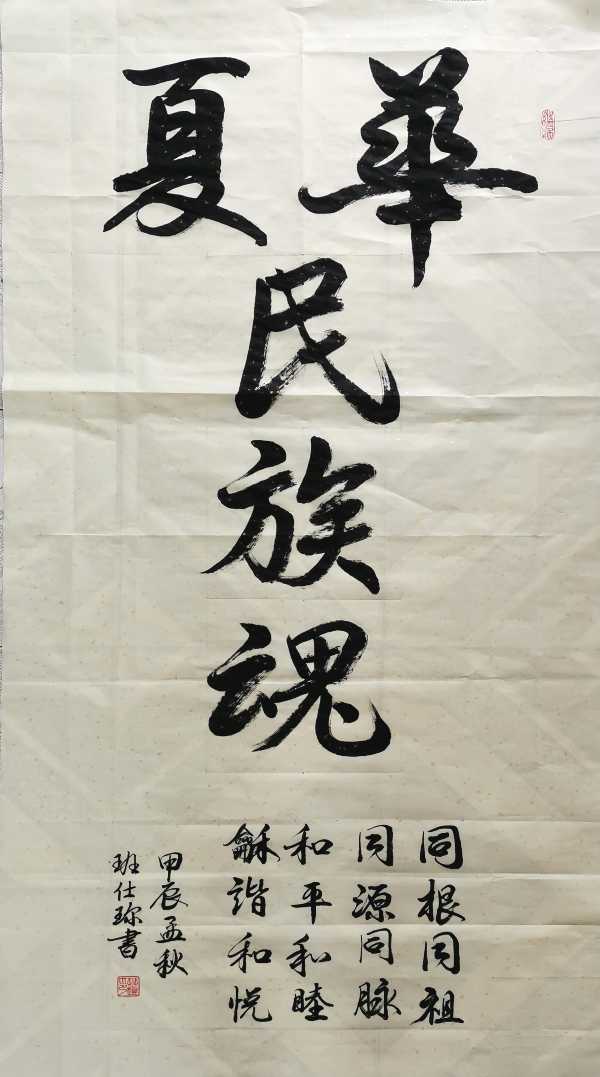 華夏
民
族
魂
同根同祖
同源同脉
和平和睦
龢諧和悦
甲辰孟秋
班仕琛書